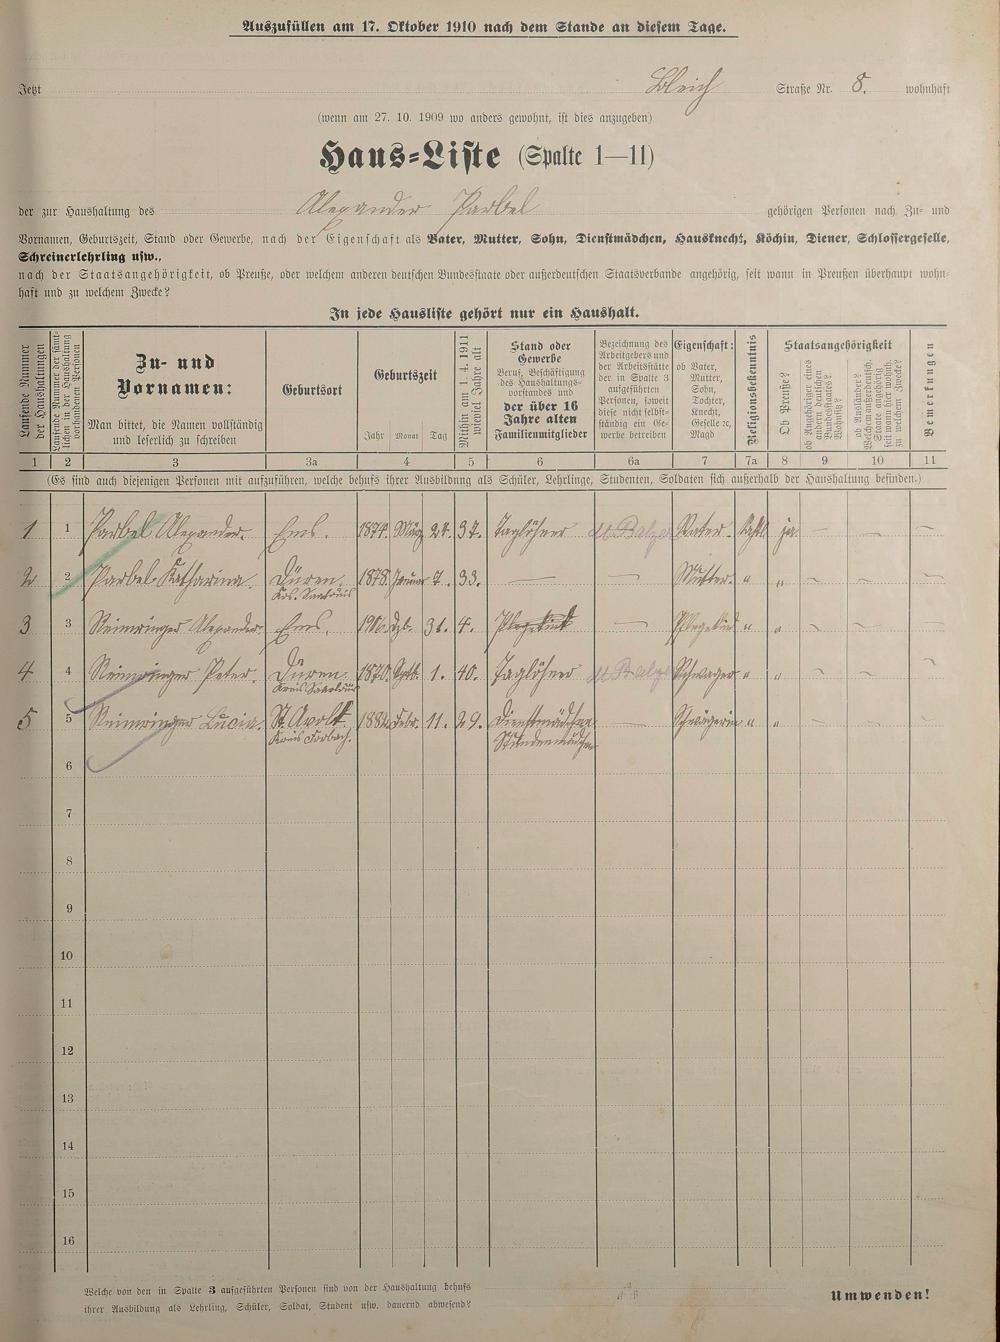 Auszufüllen am 17. Oktober 1910 nach dem Stande an diesem Tage.
Jetzt Bleich Straße Nr. 8. wohnhaft
(wenn am 27. 10. 1909 wo anders gewohnt, ist dies anzugeben)
Haus-Liste (Spalte 1—11)
der zur Haushaltung des Alexander Parbel gehörigen Personen nach Zu- und
Vornamen, Geburtszeit, Stand oder Gewerbe, nach der Eigenschaft als Vater, Mutter, Sohn, Dienstmädchen, Hausknecht, Köchin, Diener, Schlossergeselle,
Schreinerlehrling usw.,
nach der Staatsangehörigkeit, ob Preuße, oder welchem anderen deutschen Bundesstaate oder außerdeutschen Staatsverbande angehörig, seit wann in Preußen überhaupt wohn-
haft und zu welchem Zwecke?
In jede Hausliste gehört nur ein Haushalt.
Laufende Nummer
der Haushaltungen
Laufende Nummer der sämt-
lichen in der Haushaltung
vorhandenen Personen
Zu- und
Vornamen:
Man bittet, die Namen vollständig
und leserlich zu schreiben
Geburtsort
Geburtszeit
Jahr Monat Tag
Mithin am 1. 4. 1911
wieviel Jahre alt
Stand oder
Gewerbe
Beruf, Beschäftigung
des Haushaltungs-
vorstandes und
der über 16
Jahre alten
Familienmitglieder
Bezeichnung des
Arbeitgebers und
der Arbeitsstätte
der in Spalte 3
aufgeführten
Personen, soweit
diese nicht selbst-
ständig ein Ge-
werbe betreiben
Eigenschaft:
ob Vater,
Mutter,
Sohn,
Tochter,
Knecht,
Geselle ec,
Magd
Religionsbekenntnis
Staatsangehörigkeit
Ob Preuße?
ob Angehöriger eines
andern deutschen
Bundesstaates?
Wohnsitz?
ob Ausländer?
Welchem außerdeutsch.
Staate angehörig
seit wann hier wohnh.
zu welchem Zwecke?
Bemerkungen
1 2 3 3a 4 5 6 6a 7 7a 8 9 10 11
(Es sind auch diejenigen Personen mit aufzuführen, welche behufs ihrer Ausbildung als Schüler, Lehrlinge, Studenten, Soldaten sich außerhalb der Haushaltung befinden.)
1 1 Parbel Alexander. Ems. 1874. März 24. 37. Taglöhner Balzer Vater. kath. ja — —
2 2 Parbel Katharina. Düren. 1878. Januar 7. 33. — — Mutter. " " — — —
Krs. Saarlouis
3 3 Reimringer Alexander. Ems. 31. 4. Pflegekind — Pflegekind " " — — —
4 4 Reimringer Peter. Düren. 1870. Sptb. 1. 40. Taglöhner Balzer Schwager " " — — —
Kreis Saarlouis
5 5 Reimringer Lucia. St. Avolt 1882. Febr. 11. 29. Dienstmädchen — Schwägerin " " — — —
Kreis Forbach. Stundenmädchen
6
7
8
9
10
11
12
13
14
15
16
Welche von den in Spalte 3 aufgeführten Personen sind von der Haushaltung behufs
ihrer Ausbildung als Lehrling, Schüler, Soldat, Student usw. dauernd abwesend?
Umwenden!